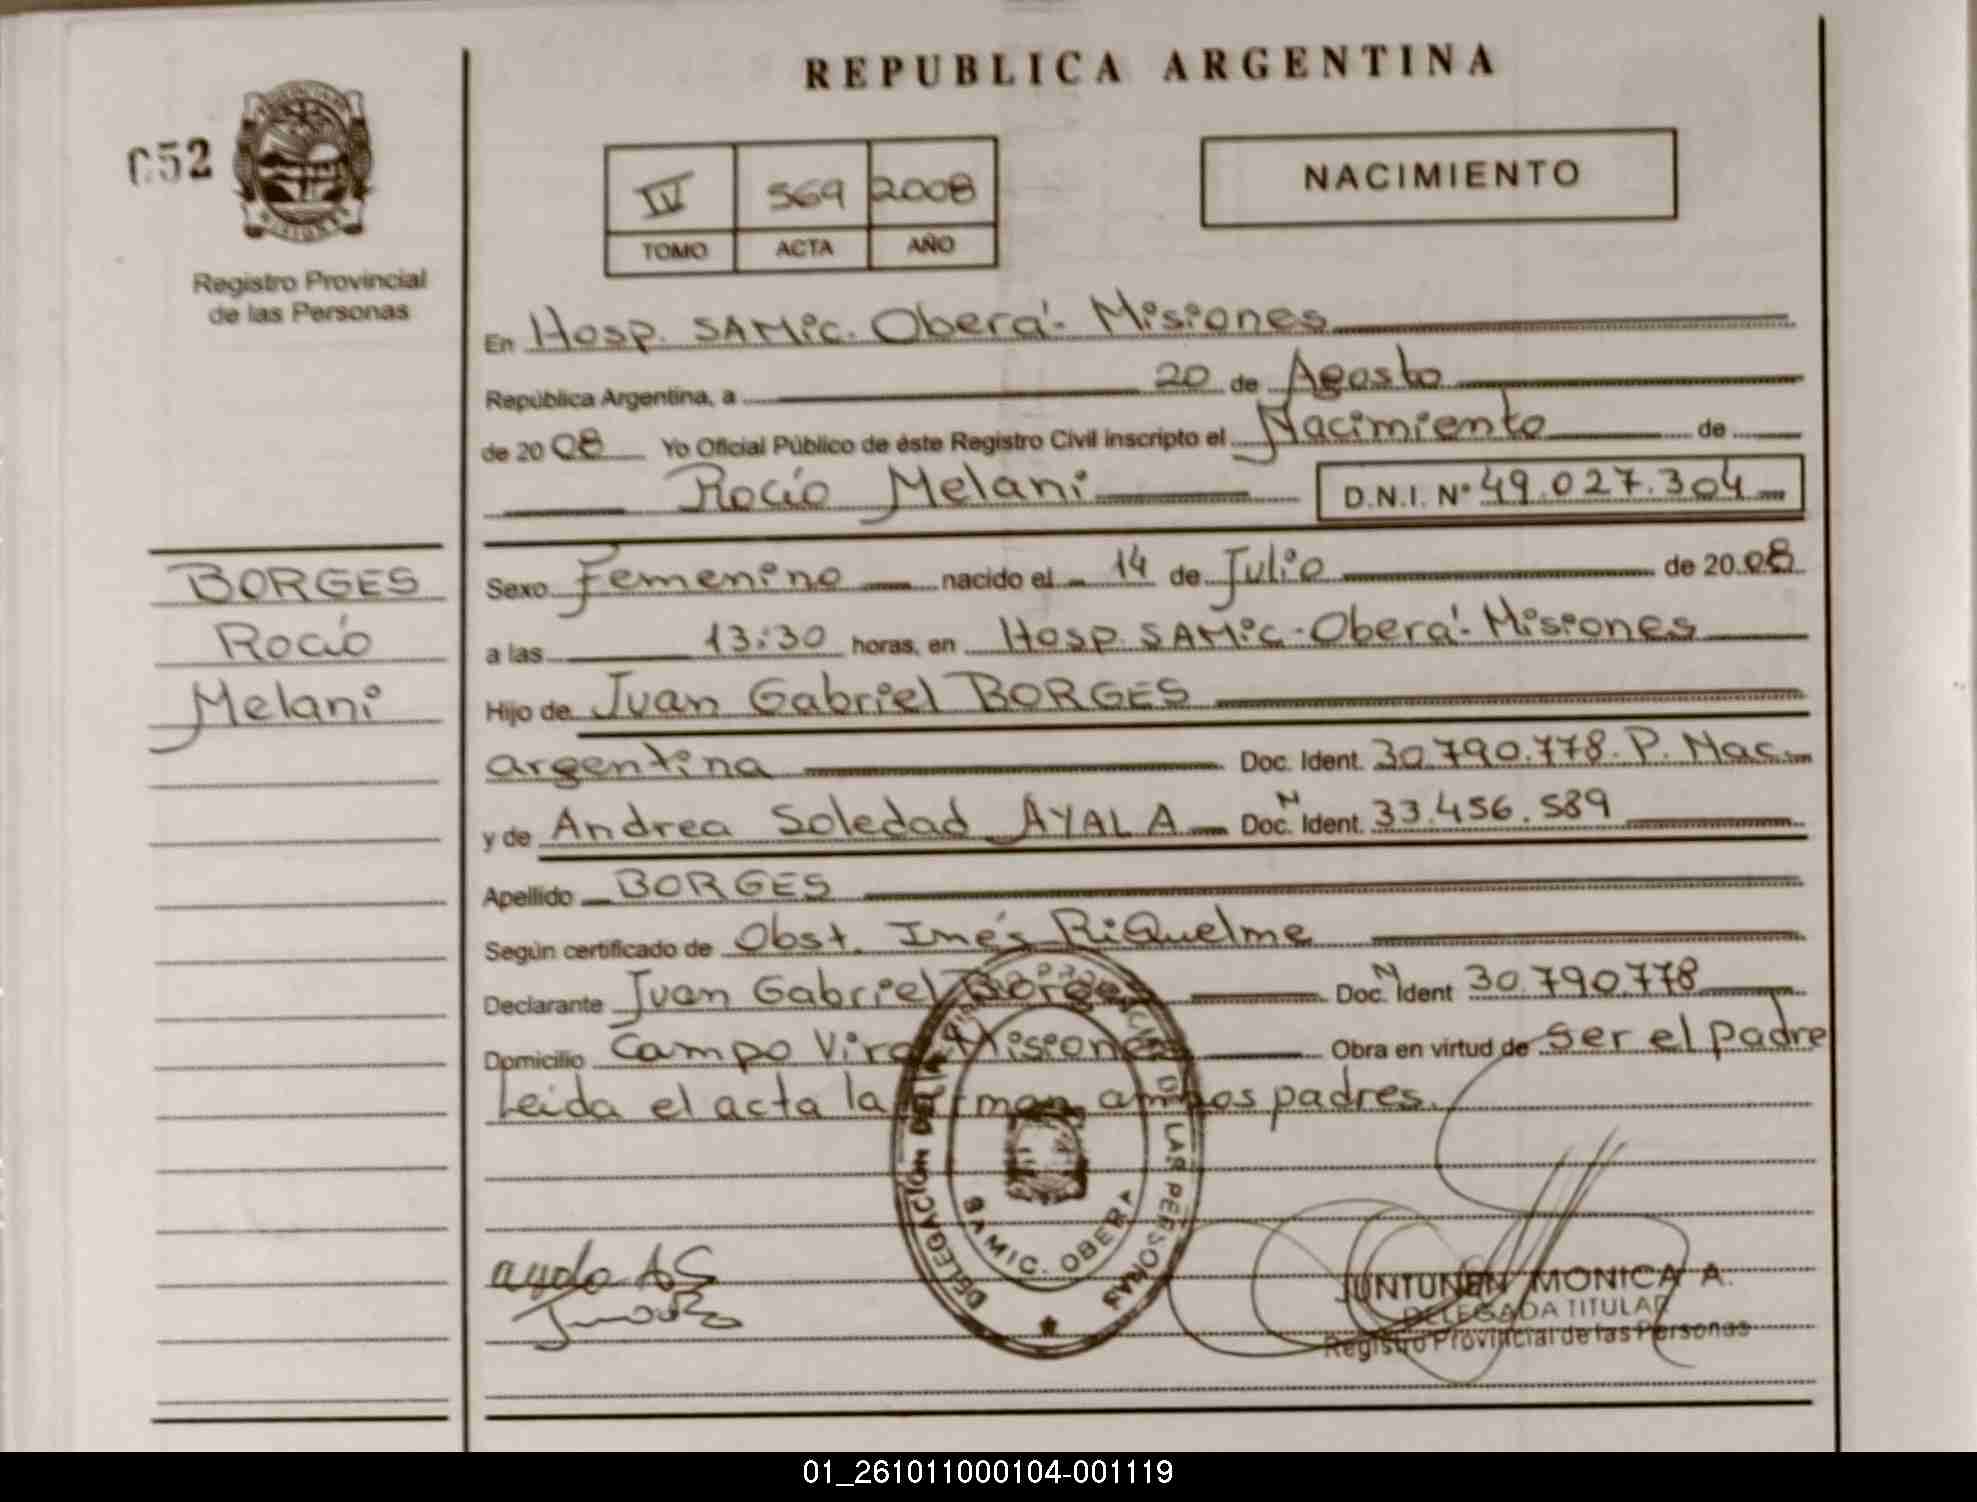 REPUBLICA ARGENTINA
052
IV 569 2008
TOMO ACTA AÑO
NACIMIENTO
Registro Provincial
de las Personas
En Hosp. SAMic. Oberá - Misiones
República Argentina, a 20 de Agosto
de 2008 Yo Oficial Público de éste Registro Civil inscripto el Nacimiento de
Rocío Melani D.N.I. Nº 49.027.304
BORGES
Rocío
Melani
Sexo Femenino nacido el 14 de Julio de 2008
a las 13:30 horas, en Hosp. SAMic - Oberá - Misiones
Hijo de Juan Gabriel BORGES
argentina Doc. Ident. 30.790.778. P. Nac.
y de Andrea Soledad AYALA Doc. N Ident. 33.456.589
Apellido BORGES
Según certificado de Obst. Inés RiQuelme
Declarante Juan Gabriel Borges Doc. N Ident 30.790.778
Domicilio Campo Viera Misiones Obra en virtud de ser el padre
Leida el acta la firman ambos padres.
DELEGACION DEL REGISTRO PROVINCIAL DE LAS PERSONAS
SAMIC. OBERA
ayala AS
JUNTUNEN MONICA A.
DELEGADA TITULAR
Registro Provincial de las Personas
01_261011000104-001119